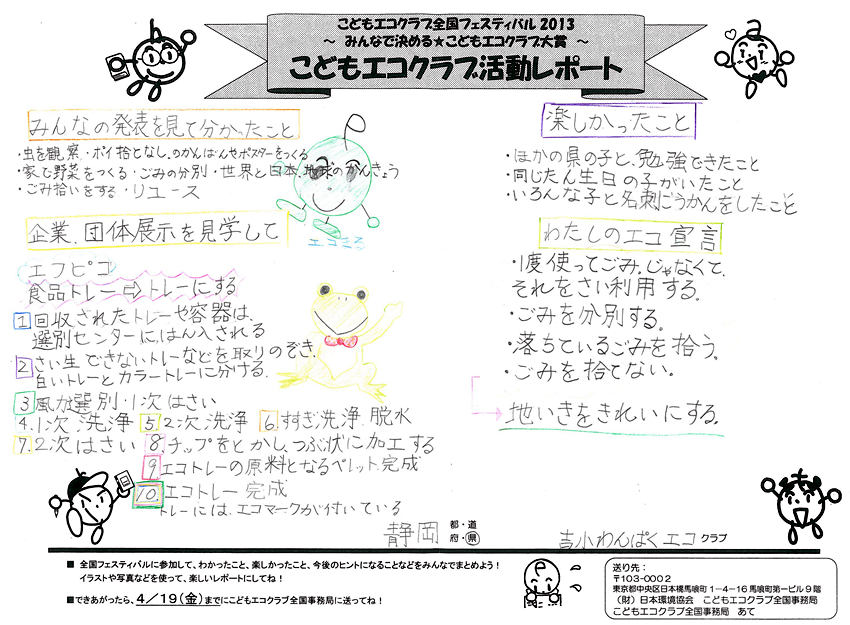 こどもエコクラブ全国フェスティバル 2013
～ みんなで決める★こどもエコクラブ大賞 ～
こどもエコクラブ活動レポート
みんなの発表を見て分かったこと
・虫を観察・ポイ捨てなし。のかんばんやポスターをつくる
・家で野菜をつくる・ごみの分別・世界と日本、地球のかんきょう
・ごみ拾いをする・リユース
エコまる
企業、団体展示を見学して
エフピコ
食品トレー⇨トレーにする
1 回収されたトレーや容器は、
選別センターに、はん入される
2 さい生できないトレーなどを取りのぞき、
白いトレーとカラートレーに分ける。
3 風力選別・1次はさい
4.1次洗浄 5 2次洗浄 6.すすぎ洗浄.脱水
7.2次はさい 8 チップをとかし、つぶ状に加工する
9 エコトレーの原料となるペレット完成
10. エコトレー完成
トレーには、エコマークが付いている
楽しかったこと
・ほかの県の子と、勉強できたこと
・同じたん生日の子がいたこと
・いろんな子と名刺こうかんをしたこと
わたしのエコ宣言
・1度使ってごみ.じゃなくて、
それをさい利用する。
・ごみを分別する。
・落ちているごみを拾う。
・ごみを捨てない。
地いきをきれいにする。
静岡 都・道
府・県
吉小わんぱくエコ クラブ
■ 全国フェスティバルに参加して、わかったこと、楽しかったこと、今後のヒントになることなどをみんなでまとめよう！
イラストや写真などを使って、楽しいレポートにしてね！
■できあがったら、4／19（金）までにこどもエコクラブ全国事務局に送ってね！
送り先：
〒103-0002
東京都中央区日本橋馬喰町1-4-16 馬喰町第一ビル9階
（財）日本環境協会 こどもエコクラブ全国事務局
こどもエコクラブ全国事務局 あて